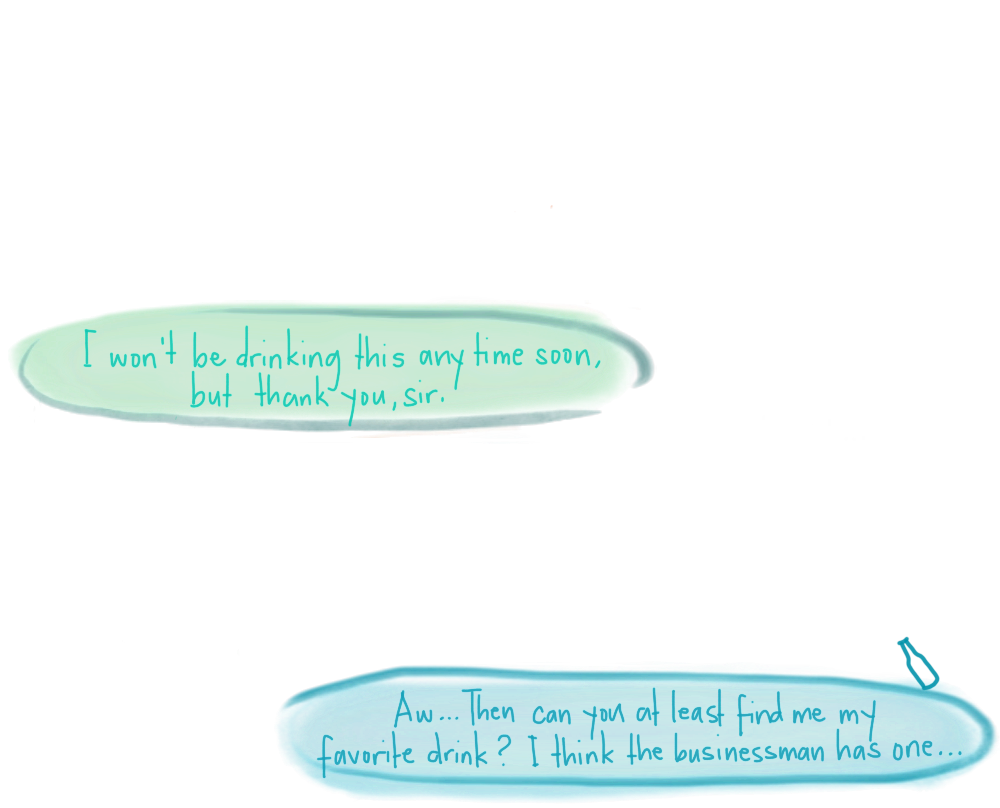 I won't be drinking this any time soon,
but thank you, sir.
Aw... Then can you at least find me my
favorite drink? I think the businessman has one...